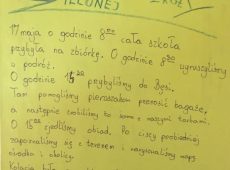 ZIELONEJ
17 maja o godzinie 8⁰⁰ cała szkoła
przybyła na zbiórkę. O godzinie 8³⁰ wyruszyliśmy
w podróż.
O godzinie przybyliśmy do Bęsi.
Tam pomogliśmy pierwszakom przenosić bagaże,
a następnie zrobiliśmy to same z naszymi torbami.
O 15⁰⁰ zjedliśmy obiad. Po ciszy poobiedniej
zapoznaliśmy się z terenem i narysowaliśmy mapę
ośrodka i okolicy.
Kolacja była